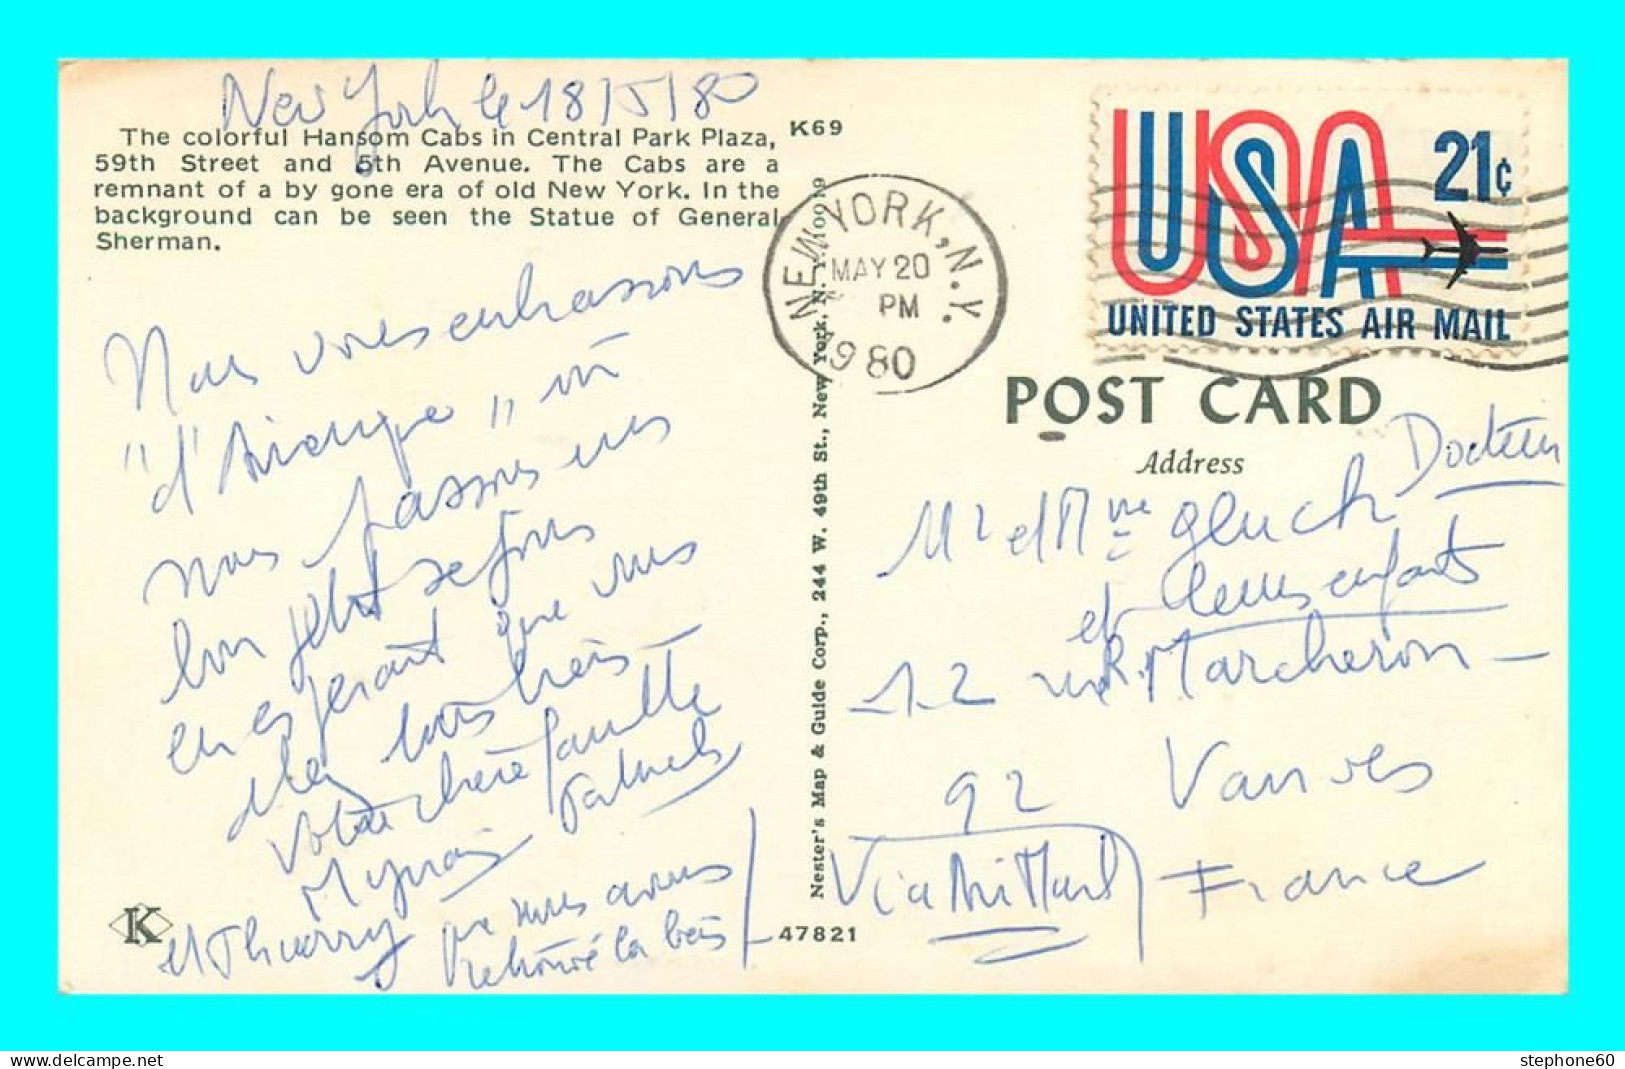 New York le 18/5/80
The colorful Hansom Cabs in Central Park Plaza,
59th Street and 5th Avenue. The Cabs are a
remnant of a by gone era of old New York. In the
background can be seen the Statue of General
Sherman.
K69
Nous vous embrassons
"d'Amérique" où
nous passons un
bon petit séjour
en espérant que vous
allez tous très
Votre chère famille
et Thierry
que nous avons
retrouvé là bas
K
Nester's Map & Guide Corp., 244 W. 49th St., New York, N. Y. 10019
47821
NEW YORK, N.Y.
MAY 20
PM
1980
USA
21¢
UNITED STATES AIR MAIL
POST CARD
Address
Docteur
Mr et Mme Gluck
et leurs enfants
12 rue R. Marcheron
92 Vanves
Via Air Mail France
stephone60